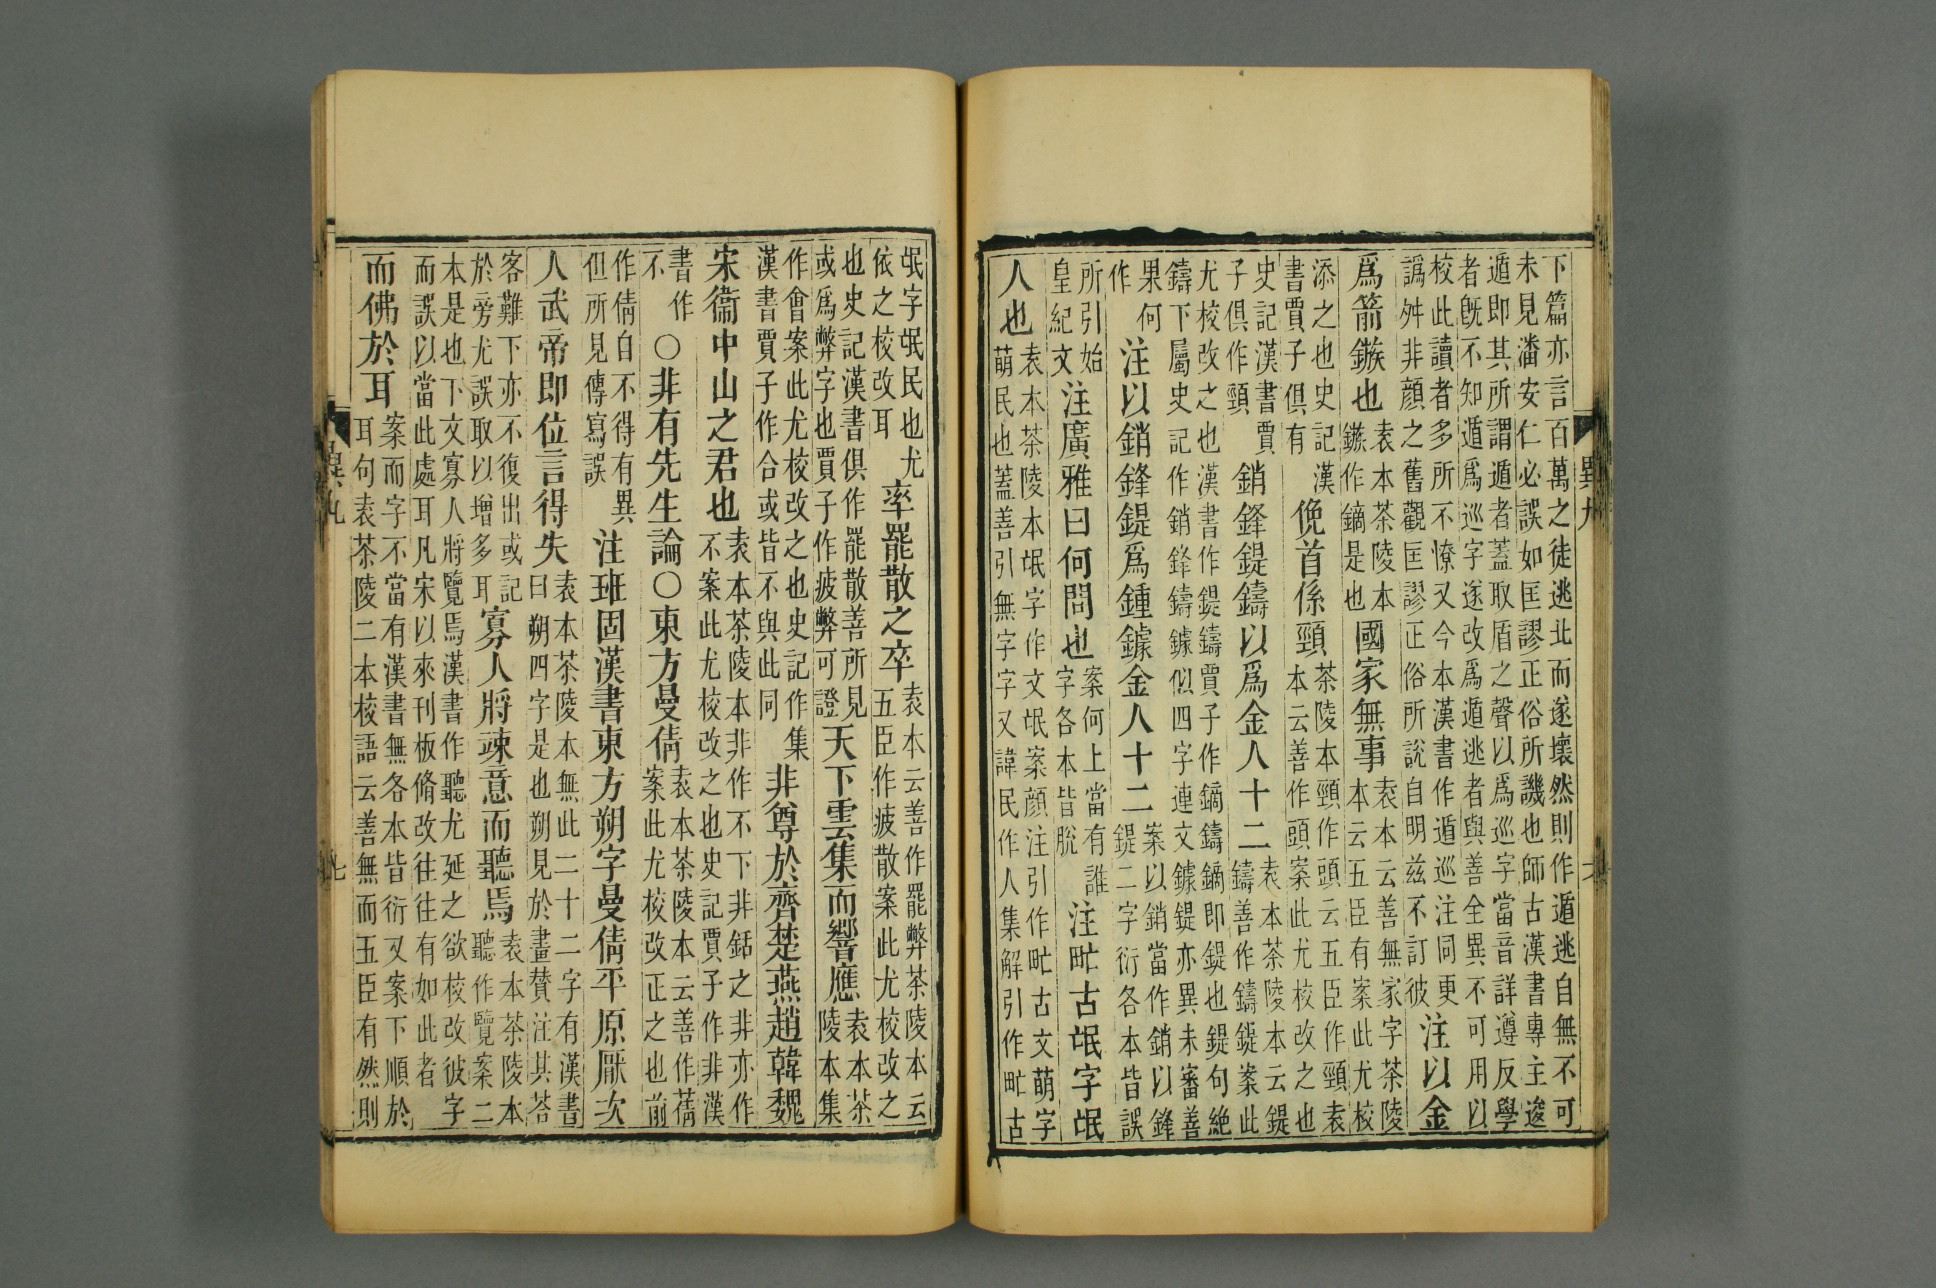 下篇亦言百萬之徒逃北而遂壞然則作遁逃自無不可
未見潘安仁必誤如匡謬正俗所譏也師古漢書專主逡
遁即其所謂遁者蓋取盾之聲以爲巡字當音詳遵反學
者旣不知遁爲巡字遂改爲遁逃者與善全異不可用以
校此讀者多所不憭又今本漢書作遁巡注同更
譌舛非顔之舊觀匡謬正俗所說自明兹不訂彼
注以金
爲箭鏃也
袁本茶陵本
鏃作鏑是也
國家無事
袁本云善無家字茶陵
本云五臣有案此尤校
添之也史記漢
書賈子俱有
俛首係頸
茶陵本頸作頭云五臣作頸袁
本云善作頭案此尤校改之也
史記漢書賈
子俱作頸
銷鋒鍉鑄以爲金人十二
袁本茶陵本云鍉
鑄善作鑄鍉案此
尤校改之也漢書作鍉鑄賈子作鏑鑄鏑即鍉也鍉句絶
鑄下屬史記作銷鋒鑄鐻似四字連文鐻鍉亦異未審善
果何
作
注以銷鋒鍉爲鍾鐻金人十二
案以銷當作銷以鋒
鍉二字衍各本皆誤
所引始
皇紀文
注廣雅曰何問也
案何上當有誰
字各本皆脫
注甿古氓字氓
人也
袁本茶陵本氓字作文氓案顔注引作甿古文萌字
萌民也蓋善引無字字又諱民作人集解引作甿古
異九
六
氓字氓民也尤
依之校改耳
率罷散之卒
袁本云善作罷弊茶陵本云
五臣作疲散案此尤校改之
也史記漢書俱作罷散善所見
或爲弊字也賈子作疲弊可證
天下雲集而響應
袁本茶
陵本集
作會案此尤校改之也史記作集
漢書賈子作合或皆不與此同
非尊於齊楚燕趙韓魏
宋衞中山之君也
袁本茶陵本非作不下非銛之非亦作
不案此尤校改之也史記賈子作非漢
書作
不
○非有先生論○東方曼倩
袁本茶陵本云善作蒨
案此尤校改正之也前
作倩自不得有異
但所見傳寫誤
注班固漢書東方朔字曼倩平原厭次
人武帝即位言得失
袁本茶陵本無此二十二字有漢書
曰朔四字是也朔見於畫贊注其荅
客難下亦不復出或記
於旁尤誤取以增多耳
寡人將竦意而聽焉
袁本茶陵本
聽作覽案二
本是也下文寡人將覽焉漢書作聽尤延之欲校改彼字
而誤以當此處耳凡宋以來刊板脩改往往有如此者
而佛於耳
案而字不當有漢書無各本皆衍又案下順於
耳句袁茶陵二本校語云善無而五臣有然則
異九
七